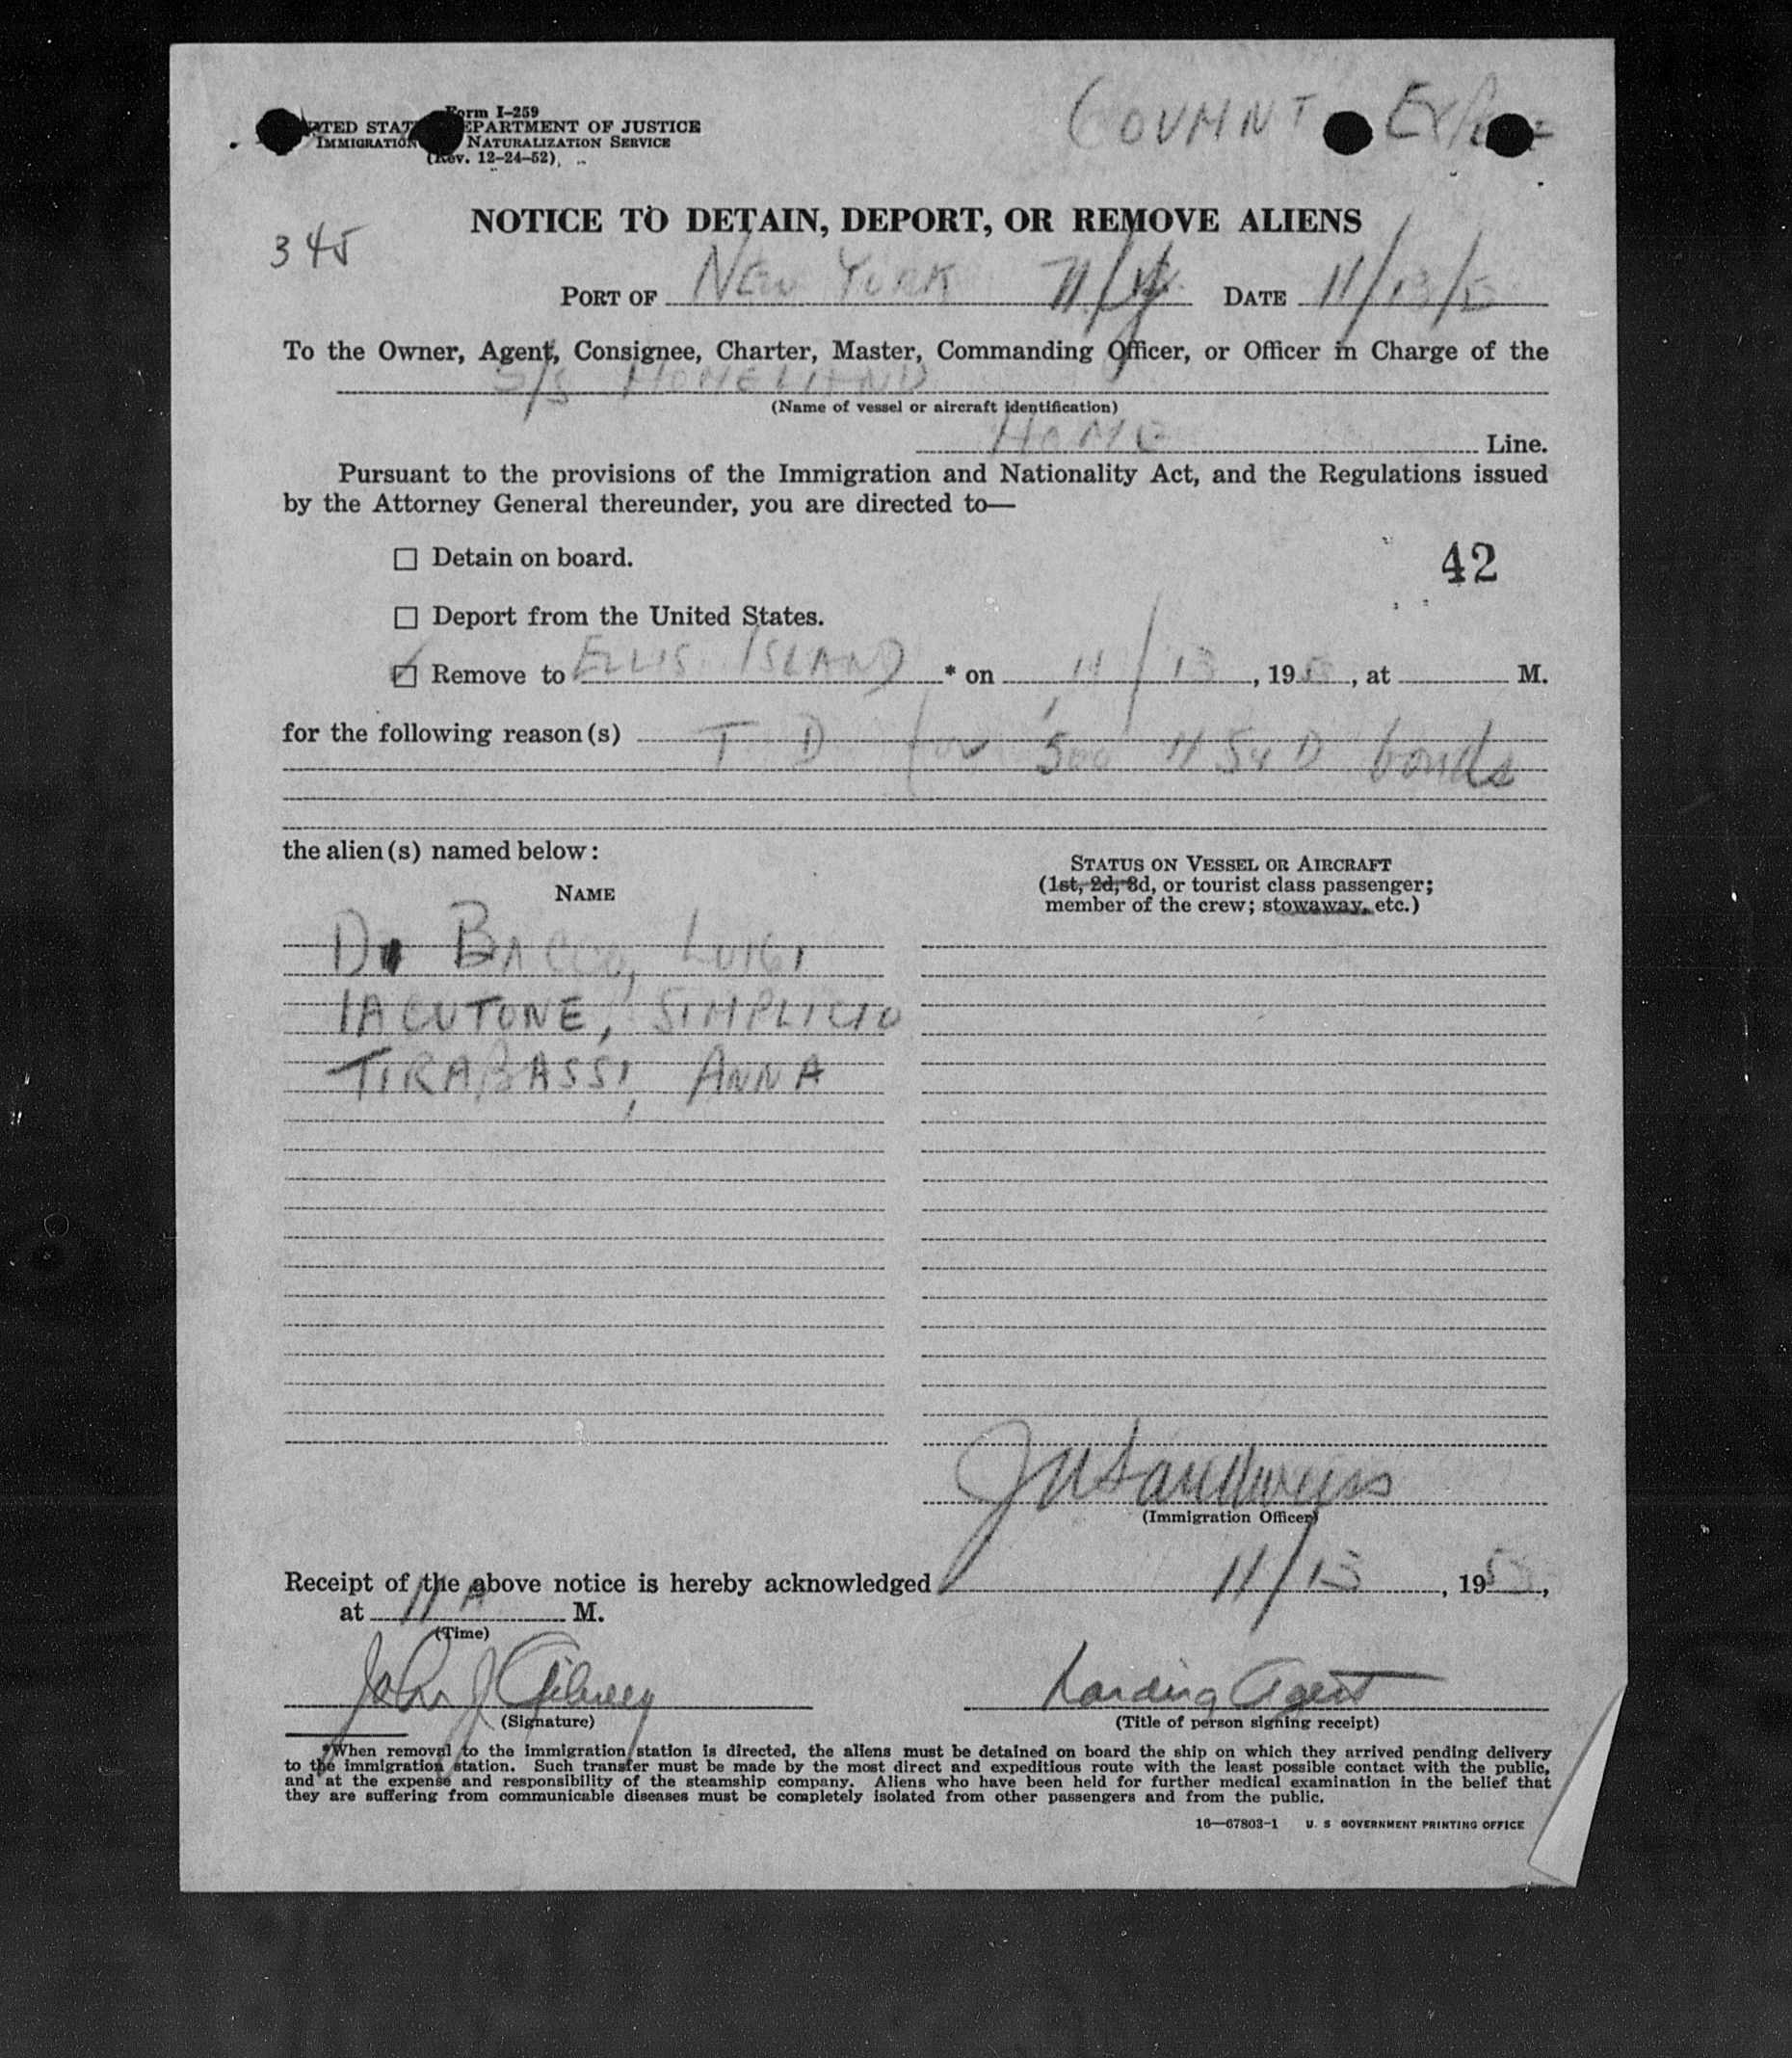 Form I-259
UNITED STATES DEPARTMENT OF JUSTICE
IMMIGRATION NATURALIZATION SERVICE
(Rev. 12-24-52)
GOVMNT
345
NOTICE TO DETAIN, DEPORT, OR REMOVE ALIENS
PORT OF NEW YORK DATE 11/13/5
To the Owner, Agent, Consignee, Charter, Master, Commanding Officer, or Officer in Charge of the
S/S HOMELAND
(Name of vessel or aircraft identification)
HOME Line.
Pursuant to the provisions of the Immigration and Nationality Act, and the Regulations issued
by the Attorney General thereunder, you are directed to—
☐ Detain on board.
42
☐ Deport from the United States.
☑ Remove to ELLIS ISLAND * on 11/13, 1953, at M.
for the following reason(s) T D for 500 bonds
the alien(s) named below:
NAME
STATUS ON VESSEL OR AIRCRAFT
(1st, 2d, 3d, or tourist class passenger;
member of the crew; stowaway, etc.)
Di BACCO, LUIGI
IACUTONE, SIMPLICIO
TIRABASSI, ANNA
(Immigration Officer)
Receipt of the above notice is hereby acknowledged 11/13, 1953,
at 11 A M.
(Time)
John J
Landing Agent
(Signature)
(Title of person signing receipt)
*When removal to the immigration station is directed, the aliens must be detained on board the ship on which they arrived pending delivery
to the immigration station. Such transfer must be made by the most direct and expeditious route with the least possible contact with the public,
and at the expense and responsibility of the steamship company. Aliens who have been held for further medical examination in the belief that
they are suffering from communicable diseases must be completely isolated from other passengers and from the public.
16—67803-1 U. S GOVERNMENT PRINTING OFFICE